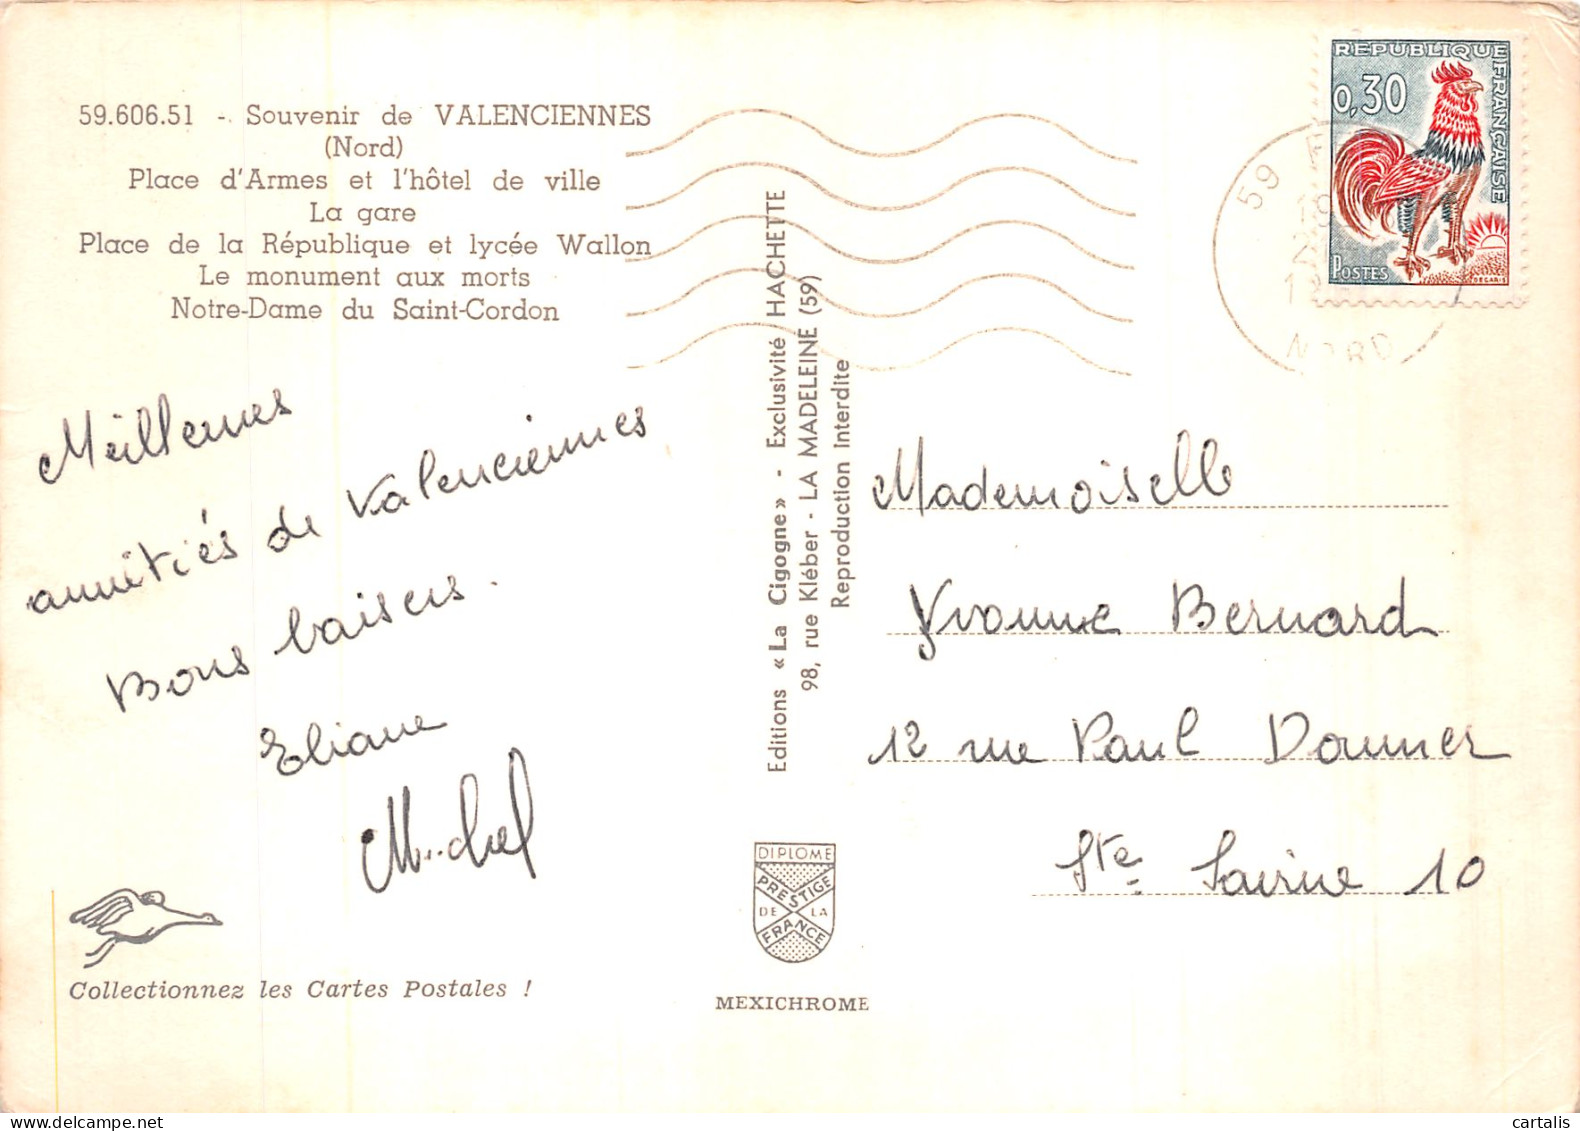 59.606.51 - Souvenir de VALENCIENNES
(Nord)
Place d'Armes et l'hôtel de ville
La gare
Place de la République et lycée Wallon
Le monument aux morts
Notre-Dame du Saint-Cordon
Meilleures
amitiés de Valenciennes
Bons baisers.
Eliane
Michel
Collectionnez les Cartes Postales !
Editions « La Cigogne » - Exclusivité HACHETTE
98, rue Kléber - LA MADELEINE (59)
Reproduction Interdite
DIPLOME
PRESTIGE
DE LA
FRANCE
MEXICHROME
REPUBLIQUE FRANÇAISE
0,30
POSTES
DECARIS
59
NORD
Mademoiselle
Yvonne Bernard
12 rue Paul Doumer
Ste Savine 10
cartalis